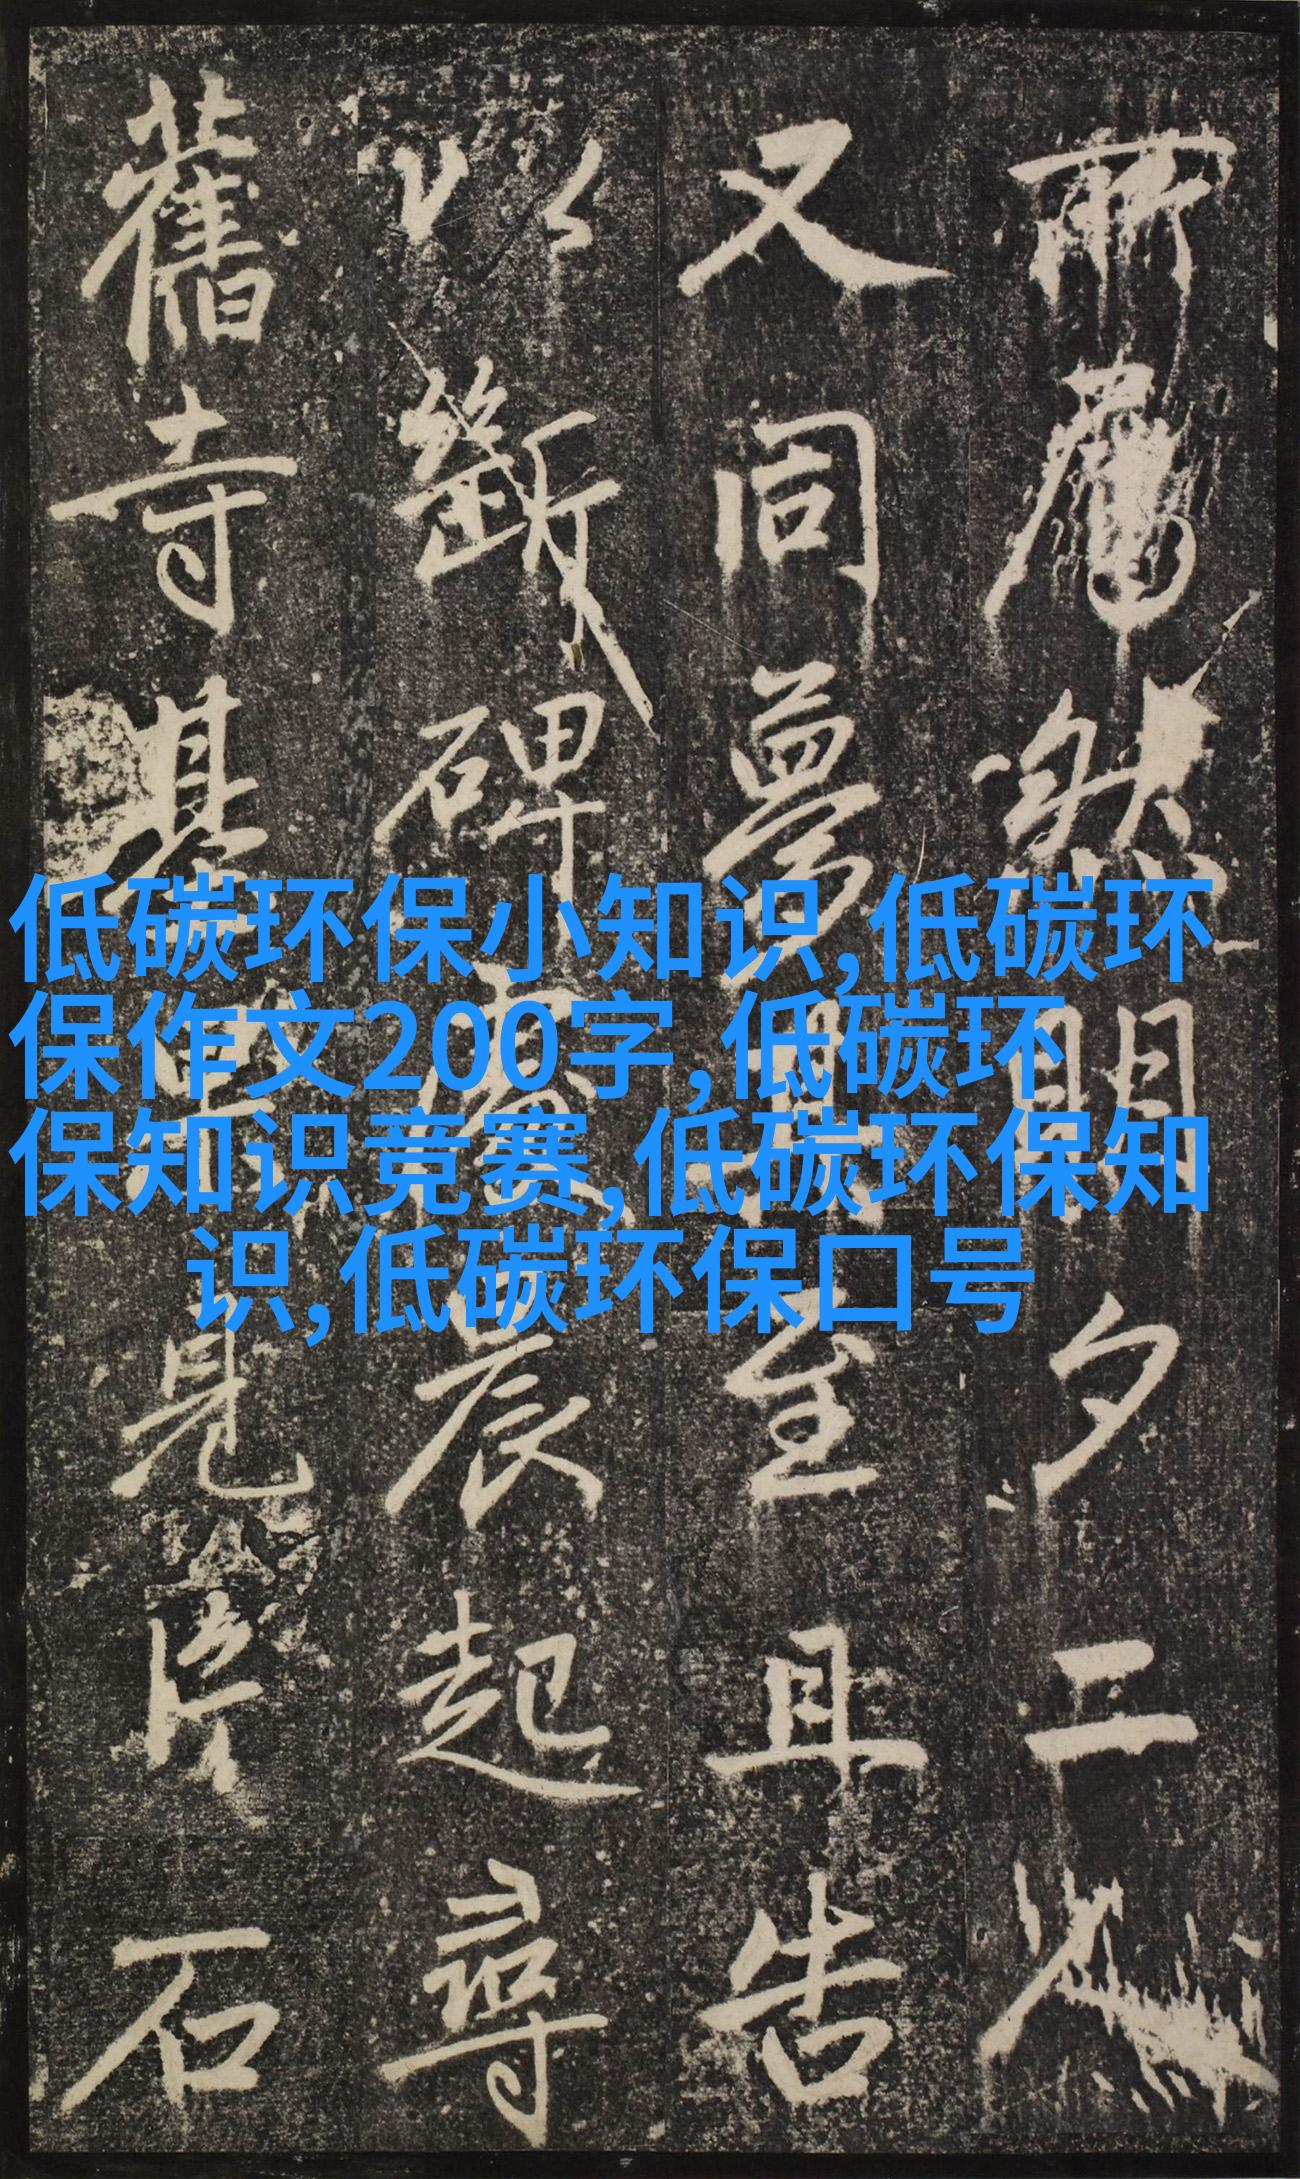 低碳环保小知识,低碳环
保作文200字,低碳环
保知识竞赛,低碳环保知
识,低碳环保口号
然明夕二
又同夢至且告
以斷碑處晨起尋
舊寺基果見片石